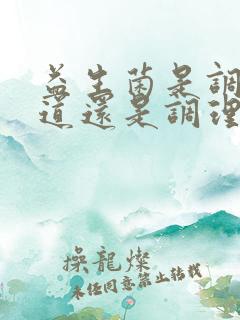 益生菌是調
道還是調理
操龍燦
未任同意禁止转载